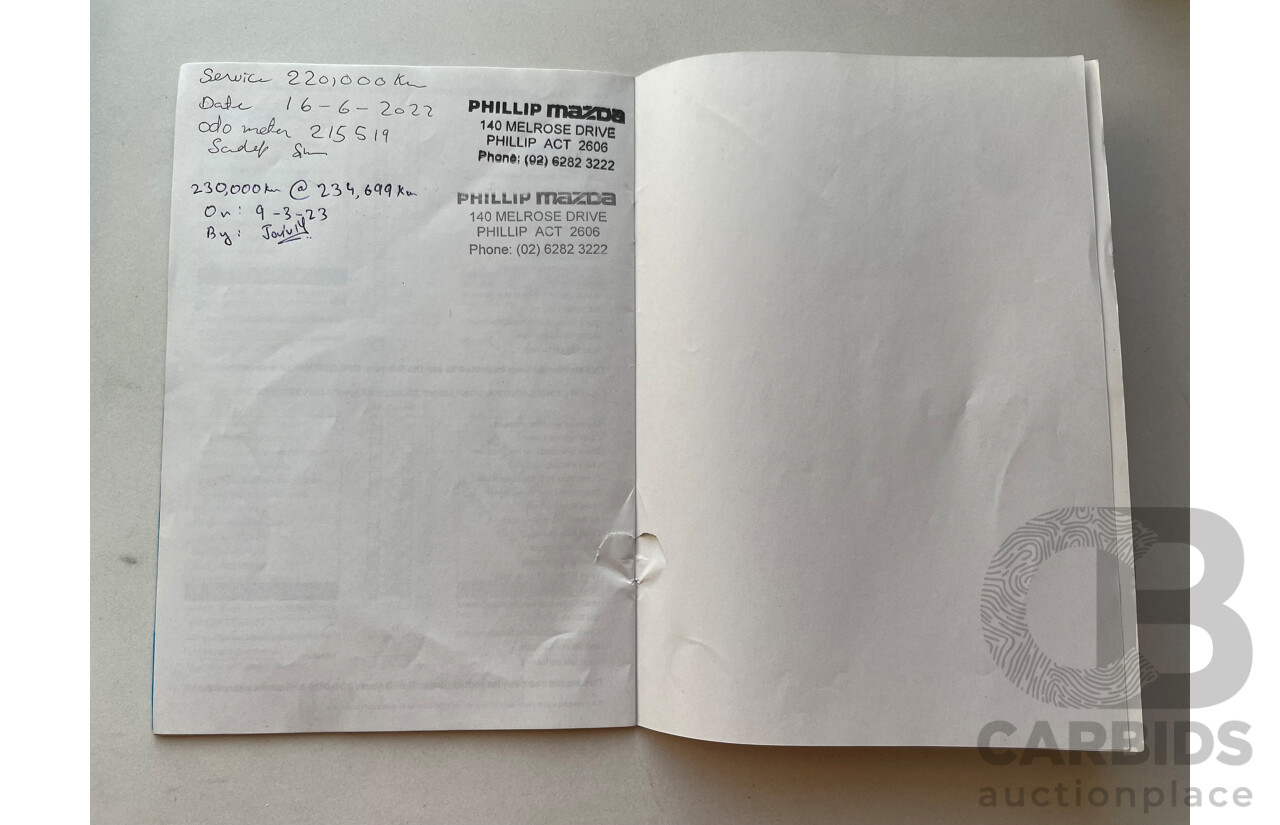 Service 220,000 Km
Date 16-6-2022
odo meter 215519
230,000km @ 234,699km
On: 9-3-23
By:
PHILLIP mazda
140 MELROSE DRIVE
PHILLIP ACT 2606
Phone: (02) 6282 3222
PHILLIP mazda
140 MELROSE DRIVE
PHILLIP ACT 2606
Phone: (02) 6282 3222
CB
CARBIDS
auctionplace